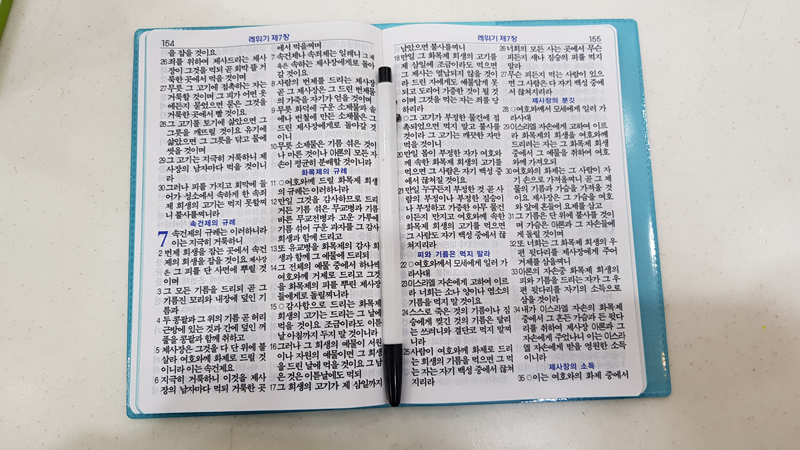 154
레위기 제7장
을 잡을 것이요
26 죄를 위하여 제사드리는 제사
장이 그것을 먹되 곧 회막 뜰 거
룩한 곳에서 먹을 것이며
27 무릇 그 고기에 접촉하는 자는
거룩할 것이며 그 피가 어떤 옷
에든지 묻었으면 묻은 그것을
거룩한 곳에서 빨 것이요
28 그 고기를 토기에 삶았으면 그
그릇을 깨뜨릴 것이요 유기에
삶았으면 그 그릇을 닦고 물에
씻을 것이며
29 그 고기는 지극히 거룩하니 제
사장의 남자마다 먹을 것이니
라
30 그러나 피를 가지고 회막에 들
어가 성소에서 속하게 한 속죄
제 희생의 고기는 먹지 못할찌
니 불사를찌니라
속건제의 규례
7 속건제의 규례는 이러하니라
이는 지극히 거룩하니
2 번제 희생을 잡는 곳에서 속건
제의 희생을 잡을 것이요 제사장
은 그 피를 단 사면에 뿌릴 것
이며
3 그 모든 기름을 드리되 곧 그
기름진 꼬리와 내장에 덮인 기
름과
4 두 콩팥과 그 위의 기름 곧 허리
근방에 있는 것과 간에 덮인 꺼
풀을 콩팥과 함께 취하고
5 제사장은 그것을 다 단 위에 불
살라 여호와께 화제로 드릴 것
이니 이는 속건제요
6 지극히 거룩하니 이것을 제사
장의 남자마다 먹되 거룩한 곳
에서 먹을찌며
7 속건제나 속죄제는 일례니 그 제
육은 속하는 제사장에게로 돌아
갈 것이요
8 사람의 번제를 드리는 제사장
곧 그 제사장은 그 드린 번제물
의 가죽을 자기가 얻을 것이며
9 무릇 화덕에 구운 소제물과 솥
에나 번철에 만든 소제물은 그
드린 제사장에게로 돌아갈 것이
니
10 무릇 소제물은 기름 섞은 것이
나 마른 것이나 아론의 모든 자
손이 평균히 분배할 것이니라
화목제의 규례
11 ○여호와께 드릴 화목제 희생
의 규례는 이러하니라
12 만일 그것을 감사하므로 드리
거든 기름 섞은 무교병과 기름
바른 무교전병과 고운 가루에
기름 섞어 구운 과자를 그 감사
희생과 함께 드리고
13 또 유교병을 화목제의 감사 희
생과 함께 그 예물에 드리되
14 그 전체의 예물 중에서 하나씩
여호와께 거제로 드리고 그것
을 화목제의 피를 뿌린 제사장
들에게로 돌릴찌니라
15 ○감사함으로 드리는 화목제
희생의 고기는 드리는 그 날에
먹을 것이요 조금이라도 이튿
날 아침까지 두지 말 것이니라
16 그러나 그 희생의 예물이 서원
이나 자원의 예물이면 그 희생
을 드린 날에 먹을 것이요 그 남
은 것은 이튿날에도 먹되
17 그 희생의 고기가 제 삼일까지
레위기 제7장
155
남았으면 불사를찌니
18 만일 그 화목제 희생의 고기를
제 삼일에 조금이라도 먹으면
그 제사는 열납되지 않을 것이
라 드린 자에게도 예물답게 못
되고 도리어 가증한 것이 될 것
이며 그것을 먹는 자는 죄를 당
하리라
그 고기가 부정한 물건에 접
촉되었으면 먹지 말고 불사를
것이라 그 고기는 깨끗한 자만
먹을 것이니
20 만일 몸이 부정한 자가 여호와
께 속한 화목제 희생의 고기를
먹으면 그 사람은 자기 백성 중에
서 끊쳐질 것이요
21 만일 누구든지 부정한 것 곧 사
람의 부정이나 부정한 짐승이
나 부정하고 가증한 아무 물건
이든지 만지고 여호와께 속한
화목제 희생의 고기를 먹으면
그 사람도 자기 백성 중에서 끊
쳐지리라
피와 기름은 먹지 말라
22 ○여호와께서 모세에게 일러 가
라사대
23 이스라엘 자손에게 고하여 이르
라 너희는 소나 양이나 염소의
기름을 먹지 말 것이요
24 스스로 죽은 것의 기름이나 짐
승에게 찢긴 것의 기름은 달리
는 쓰려니와 결단코 먹지 말찌
니라
25 사람이 여호와께 화제로 드리
는 희생의 기름을 먹으면 그 먹
는 자는 자기 백성 중에서 끊쳐
지리라
26 너희의 모든 사는 곳에서 무슨
피든지 새나 짐승의 피를 먹지
말라
27 무슨 피든지 먹는 사람이 있으
면 그 사람은 다 자기 백성 중에
서 끊쳐지리라
제사장의 분깃
28 ○여호와께서 모세에게 일러 가
라사대
29 이스라엘 자손에게 고하여 이르
라 화목제의 희생을 여호와께
드리려는 자는 그 화목제 희생
중에서 그 예물을 취하여 여호
와께 가져오되
30 여호와의 화제는 그 사람이 자
기 손으로 가져올찌니 곧 그 제
물의 기름과 가슴을 가져올 것
이요 제사장은 그 가슴을 여호
와 앞에 흔들어 요제를 삼고
31 그 기름은 단 위에 불사를 것이
며 가슴은 아론과 그 자손들에
게 돌릴 것이며
32 또 너희는 그 화목제 희생의 우
편 뒷다리를 제사장에게 주어
거제를 삼을찌니
33 아론의 자손중 화목제 희생의
피와 기름을 드리는 자가 그 우
편 뒷다리를 자기의 소득으로
삼을 것이라
34 내가 이스라엘 자손의 화목제
중에서 그 흔든 가슴과 든 뒷다
리를 취하여 제사장 아론과 그
자손에게 주었나니 이는 이스라
엘 자손에게 받을 영원한 소득
이니라
제사장의 소득
35 ○이는 여호와의 화제 중에서